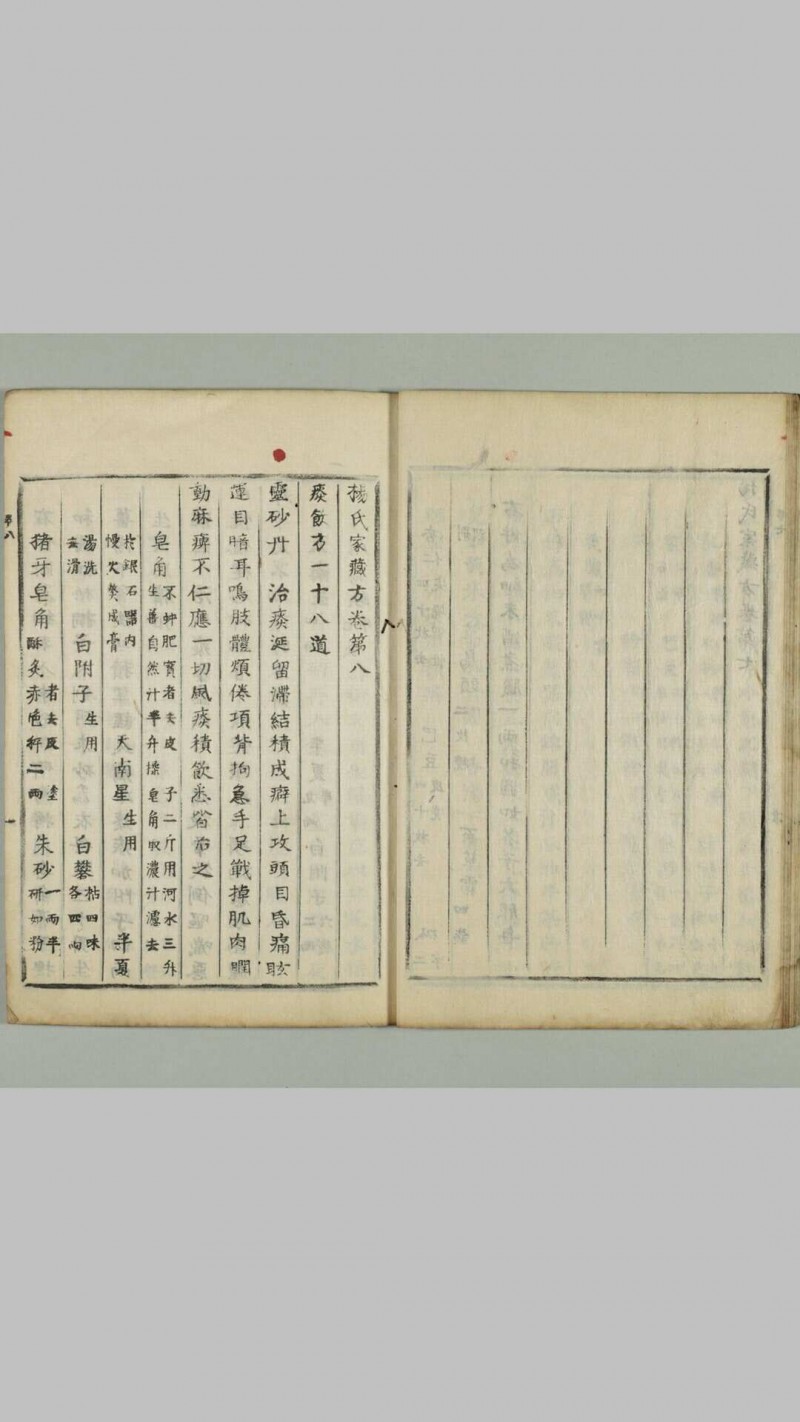 楊氏家藏方卷第八
痰飲方一十八道
靈砂丹　治痰涎留滯結積成癖上攻頭目昏痛眩
運目暗耳鳴肢體煩倦項背拘急手足戰掉肌肉瞤
動麻痺不仁應一切風痰積飲悉皆治之
皂角不蚛肥實者去皮子二斤用河水三升生薑自然汁半升揉皂角取濃汁濾去
滓銀石器內慢火熬成膏　天南星生用　半夏
湯洗去滑　白附子生用　白礬枯四味各四兩
猪牙皂角者去皮塗酥炙赤色秤二兩　朱砂一兩半研如粉
八